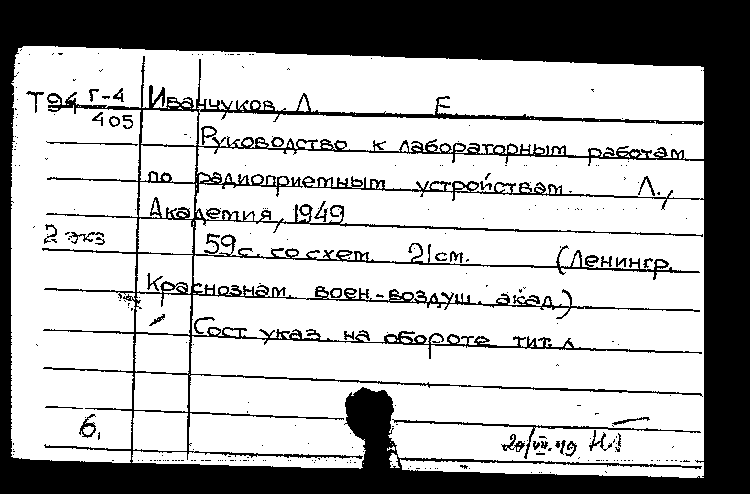 Т94 Г-4 Иванчуков, Л. Е.
405
Руководство к лабораторным работам
по радиоприемным устройствам. Л.,
Академия, 1949
2 экз 59 с. со схем. 21 см. (Ленингр.
Краснознам. воен.-воздуш. акад.)
Сост. указ. на обороте тит. л.
6,
29/VII.49